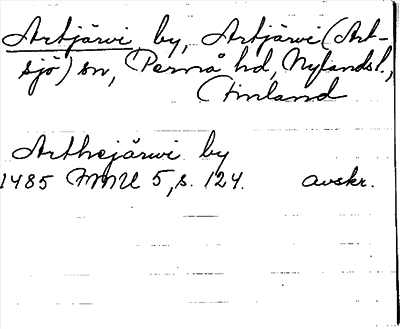 Artjärvi by, Artjärvi (Art-
sjö) sn, Pernå hd, Nylands l.,
Finland
Arthejärwi by
1485 FMU 5, s. 124. avskr.